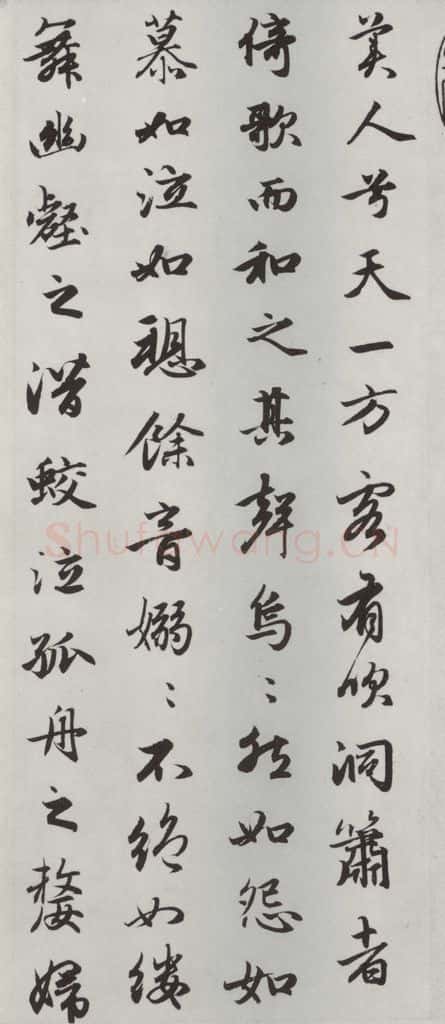 美人兮天一方客有吹洞簫者
倚歌而和之其聲烏〻然如怨如
慕如泣如愬餘音嫋〻不絕如縷
舞幽壑之潛蛟泣孤舟之嫠婦
Shufawang.CN